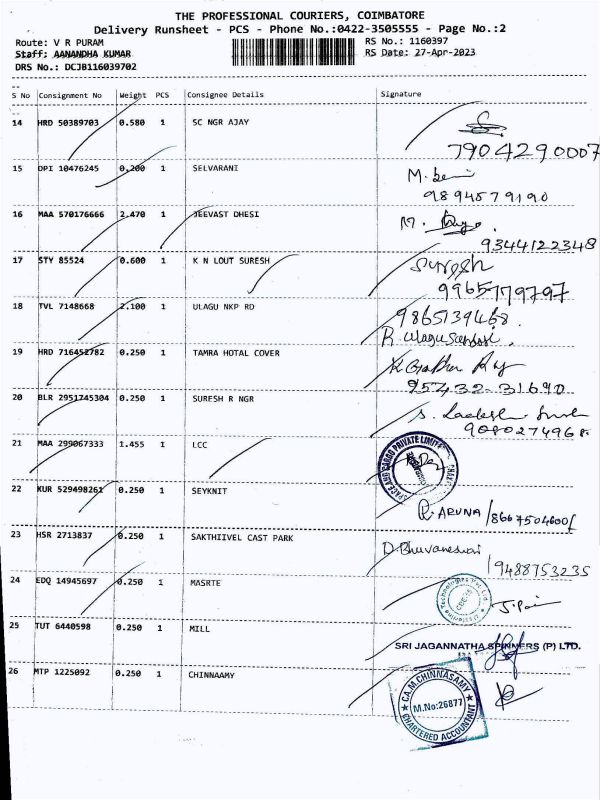 THE PROFESSIONAL COURIERS, COIMBATORE
Delivery Runsheet - PCS - Phone No.:0422-3505555 - Page No.:2
Route: V R PURAM RS No.: 1160397
Staff: AANANDHA KUMAR RS Date: 27-Apr-2023
DRS No.: DCJB116039702
S No Consignment No Weight PCS Consignee Details Signature
14 HRD 50389703 0.580 1 SC NGR AJAY
7904290007
15 DPI 10476245 0.200 1 SELVARANI
9894579190
16 MAA 570176666 2.470 1 JEEVAST DHESI
9344122348
17 STY 85524 0.600 1 K N LOUT SURESH Suresh
9965779797
18 TVL 7148668 2.100 1 ULAGU NKP RD 9865139468.
19 HRD 716452782 0.250 1 TAMRA HOTAL COVER
95432-31690
20 BLR 2951745304 0.250 1 SURESH R NGR
21 MAA 299067333 1.455 1 LCC
SPACE AND CARGO PRIVATE LIMITED
22 KUR 529498261 0.250 1 SEYKNIT
R. ARUNA /8667504600
23 HSR 2713837 0.250 1 SAKTHIIVEL CAST PARK D. Bhuvaneswari
/9488753235
24 EDQ 14945697 0.250 1 MASRTE
Technologies Pvt Ltd
25 TUT 6440598 0.250 1 MILL
SRI JAGANNATHA SPINNERS (P) LTD.
26 MTP 1225092 0.250 1 CHINNAAMY
CA.M.CHINNASAMY
M.No:26877
CHARTERED ACCOUNTANT